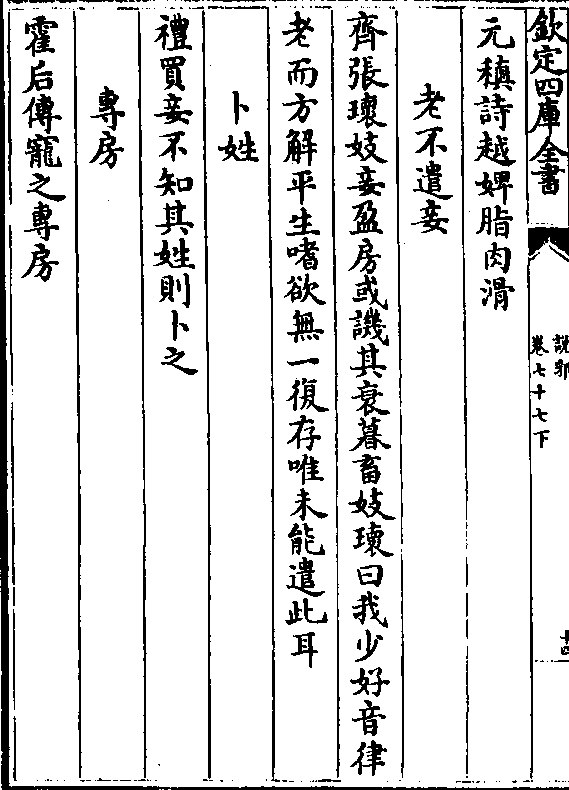 欽定四庫全書
說郛
卷七十七下
十四
元稹詩越婢脂肉滑
老不遣妾
齊張瓌妓妾盈房或譏其衰暮畜妓瓌曰我少好音律
老而方解平生嗜欲無一復存唯未能遣此耳
卜姓
禮買妾不知其姓則卜之
專房
霍后傳寵之專房